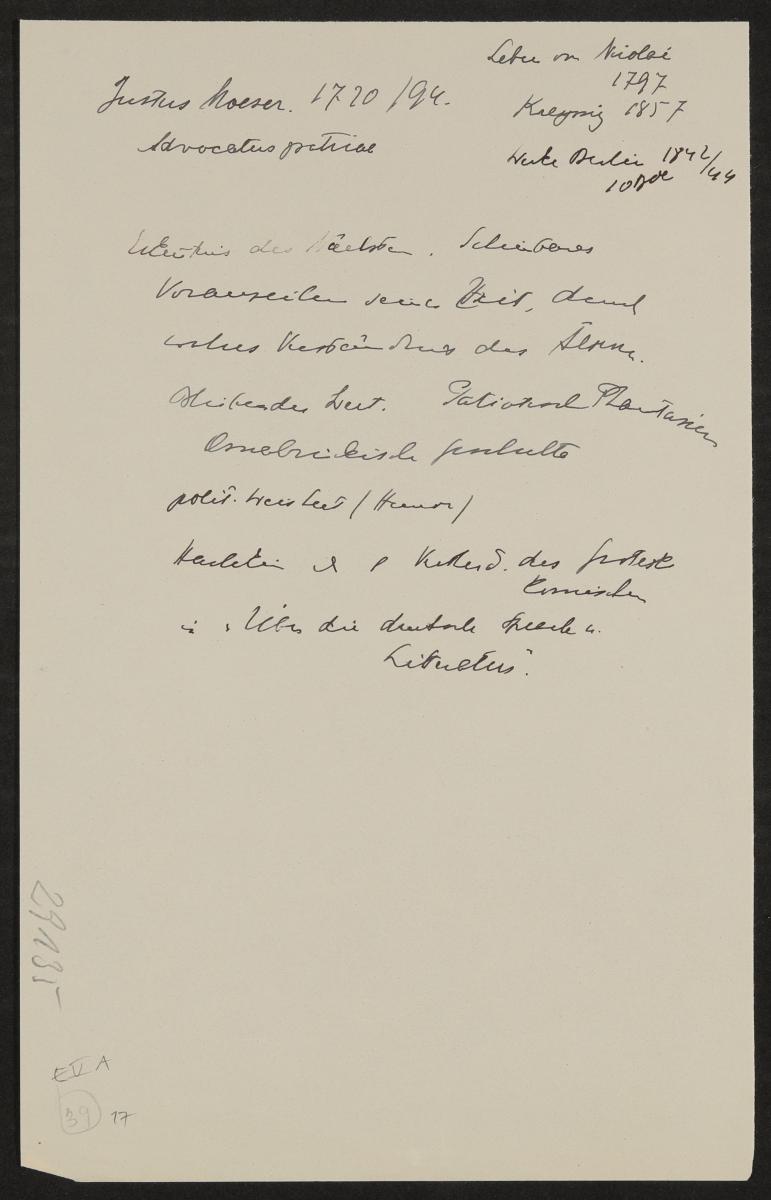 Leben von Nicolai
1797
Justus Moeser. 1720/94.
Kreyssig 1857
Advocatus patriae
Werke Berlin 1842/44
10 Bde
des Nächsten. Scheinbares
Voraneilen seiner Zeit, damit
Verständnis des Älteren.
Bleibender Wert. Patriotische Phantasien
Osnabrückische Geschichte
polit. Weisheit (Humor)
Harlekin des Grotesk
Komischen
in "Über die deutsche Sprache u.
Literatur".
29135
E V A
39 17